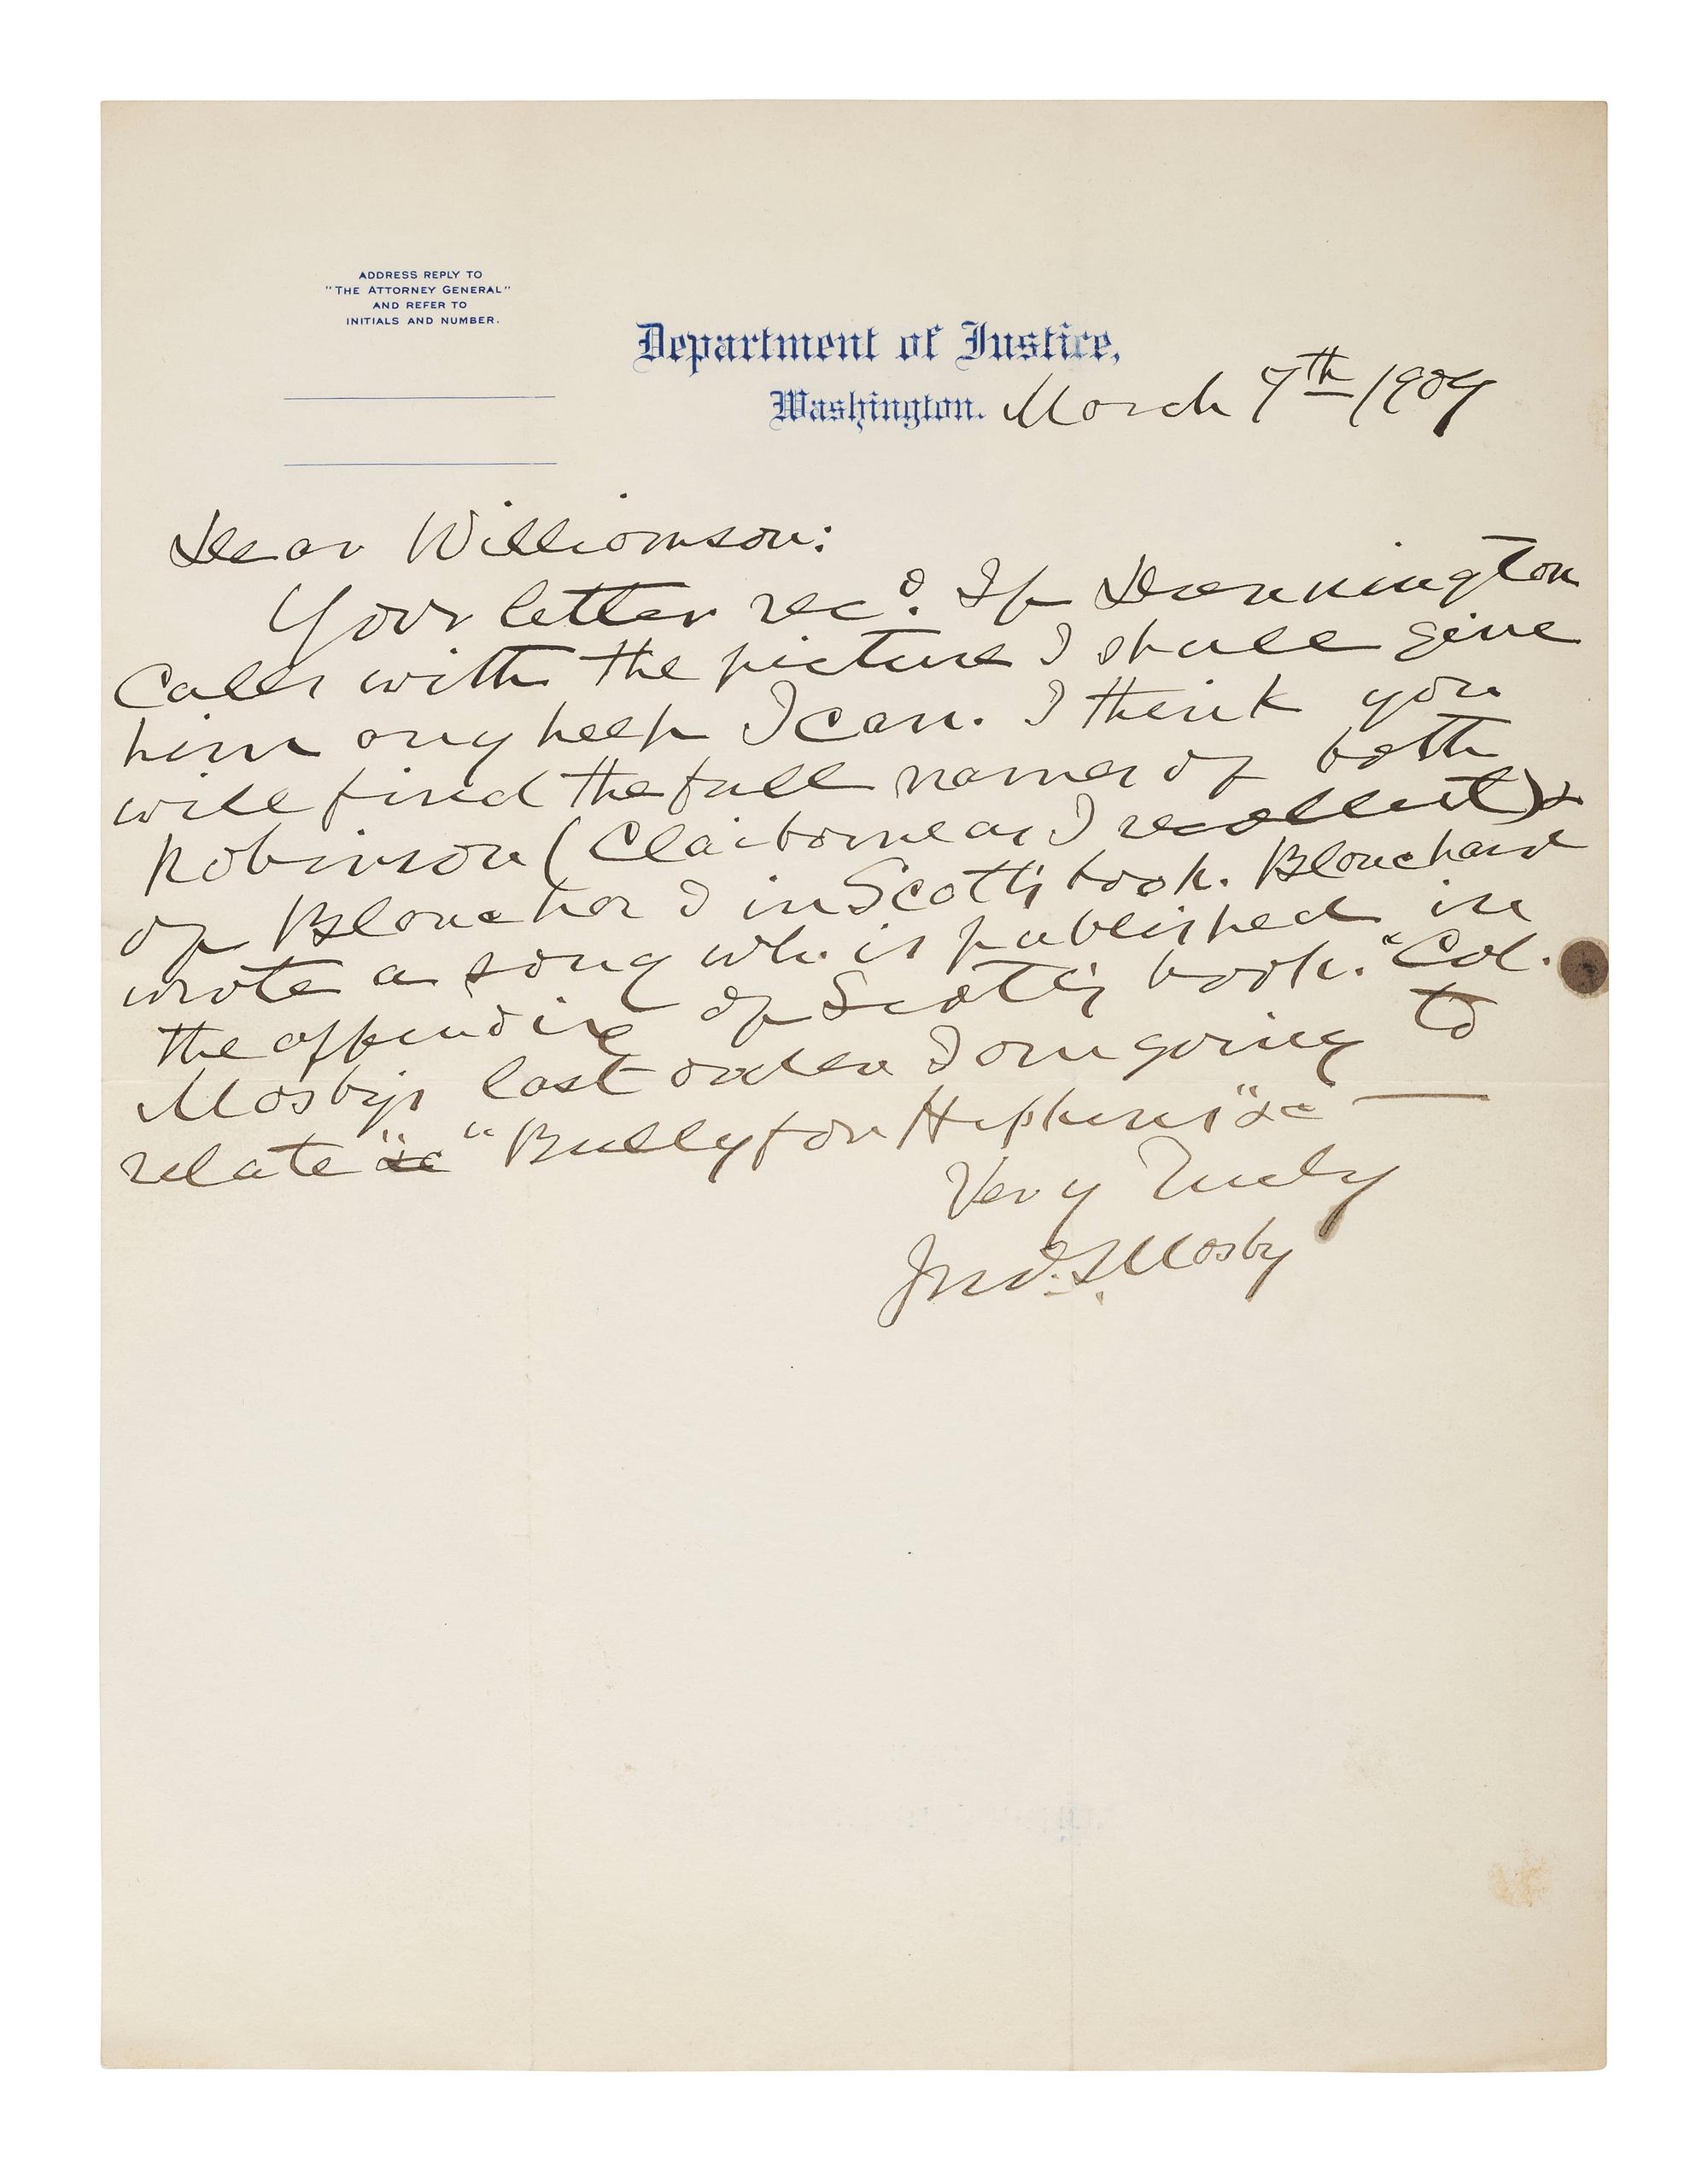 ADDRESS REPLY TO
"THE ATTORNEY GENERAL"
AND REFER TO
INITIALS AND NUMBER.
Department of Justice,
Washington. March 7th 1909
Dear Williamson:
Your letter recd. If Dannington
calls with the picture I shall give
him any help I can. I think you
will find the full names of both
Robinson (Claiborne as I recollect) &
of Blanchard in Scott's book. Blanchard
wrote a song wh. is published in
the appendix of Scott's book. "Col.
Mosby's last order I am going to
relate" &c "Bully for Hipkins" &c —
Very Truly
Jno. S. Mosby